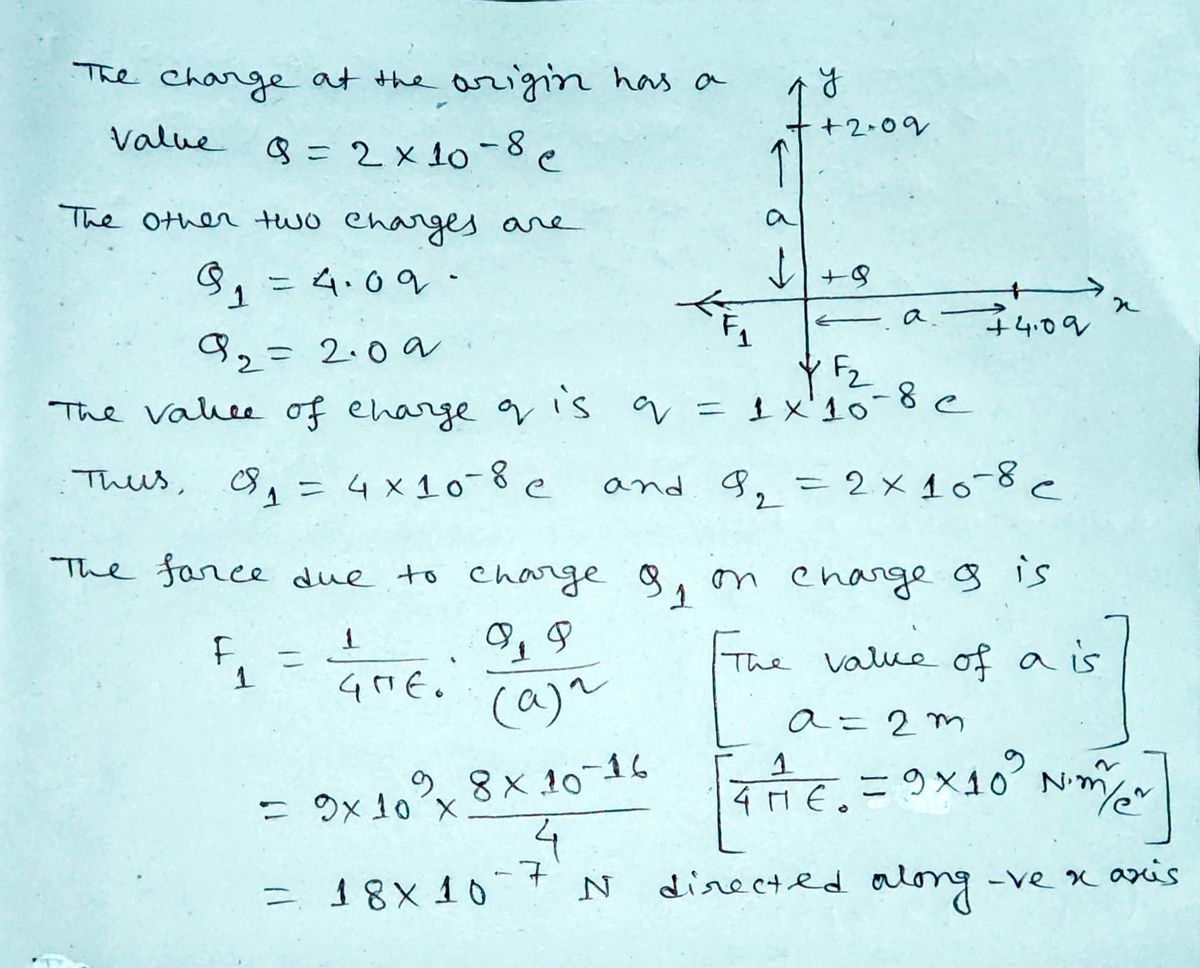 The charge at the origin has a
value Q = 2 × 10⁻⁸ c
The other two charges are
Q₁ = 4.0q.
Q₂ = 2.0q
y
+2.0q
a
+Q
x
F₁
a
+4.0q
F₂
The value of charge q is q = 1×10⁻⁸ c
Thus, Q₁ = 4×10⁻⁸ c and Q₂ = 2×10⁻⁸ c
The force due to charge Q₁ on charge Q is
F₁ = 1/4πε₀ . Q₁Q/(a)² [The value of a is
a = 2 m]
= 9×10⁹ × 8×10⁻¹⁶/4 [1/4πε₀ = 9×10⁹ N.m²/c²]
= 18×10⁻⁷ N directed along -ve x axis